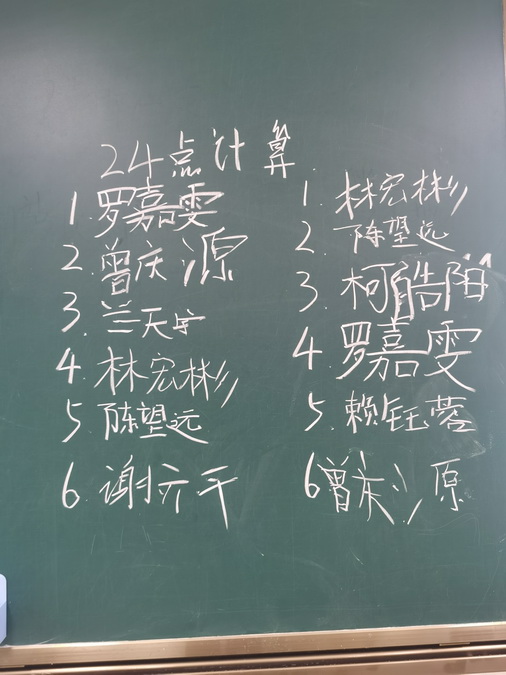 24点计算
1.罗嘉雯
2.曾庆源
3.兰天宇
4.林宏彬
5.陈望远
6.谢亦千
1.林宏彬
2.陈望远
3.柯皓阳
4.罗嘉雯
5.赖钰蓉
6.曾庆源